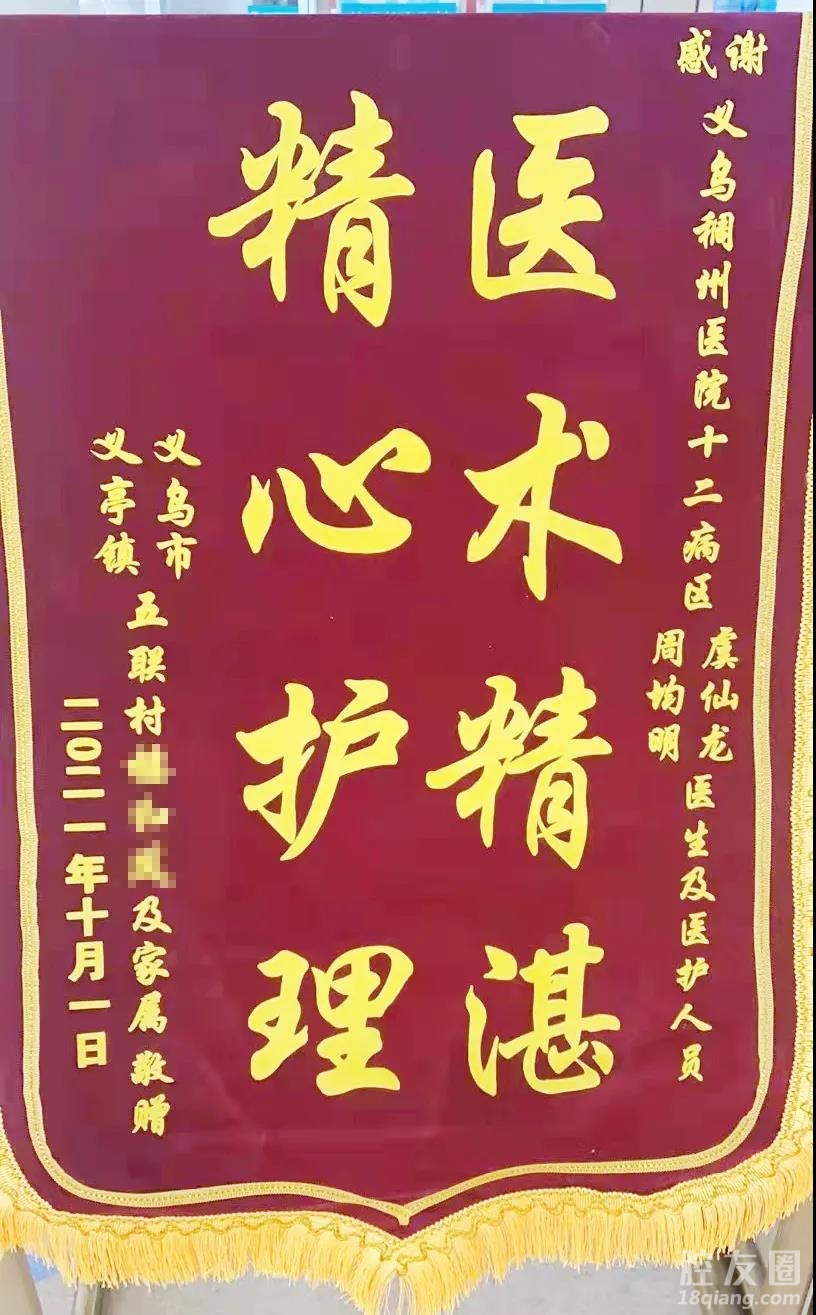 感谢
义乌稠州医院十二病区
虞仙龙
周均明
医生及医护人员
医术精湛
精心护理
义乌市
义亭镇
五联村
及家属敬赠
二〇二一年十月一日
腔友圈
18qiang.com